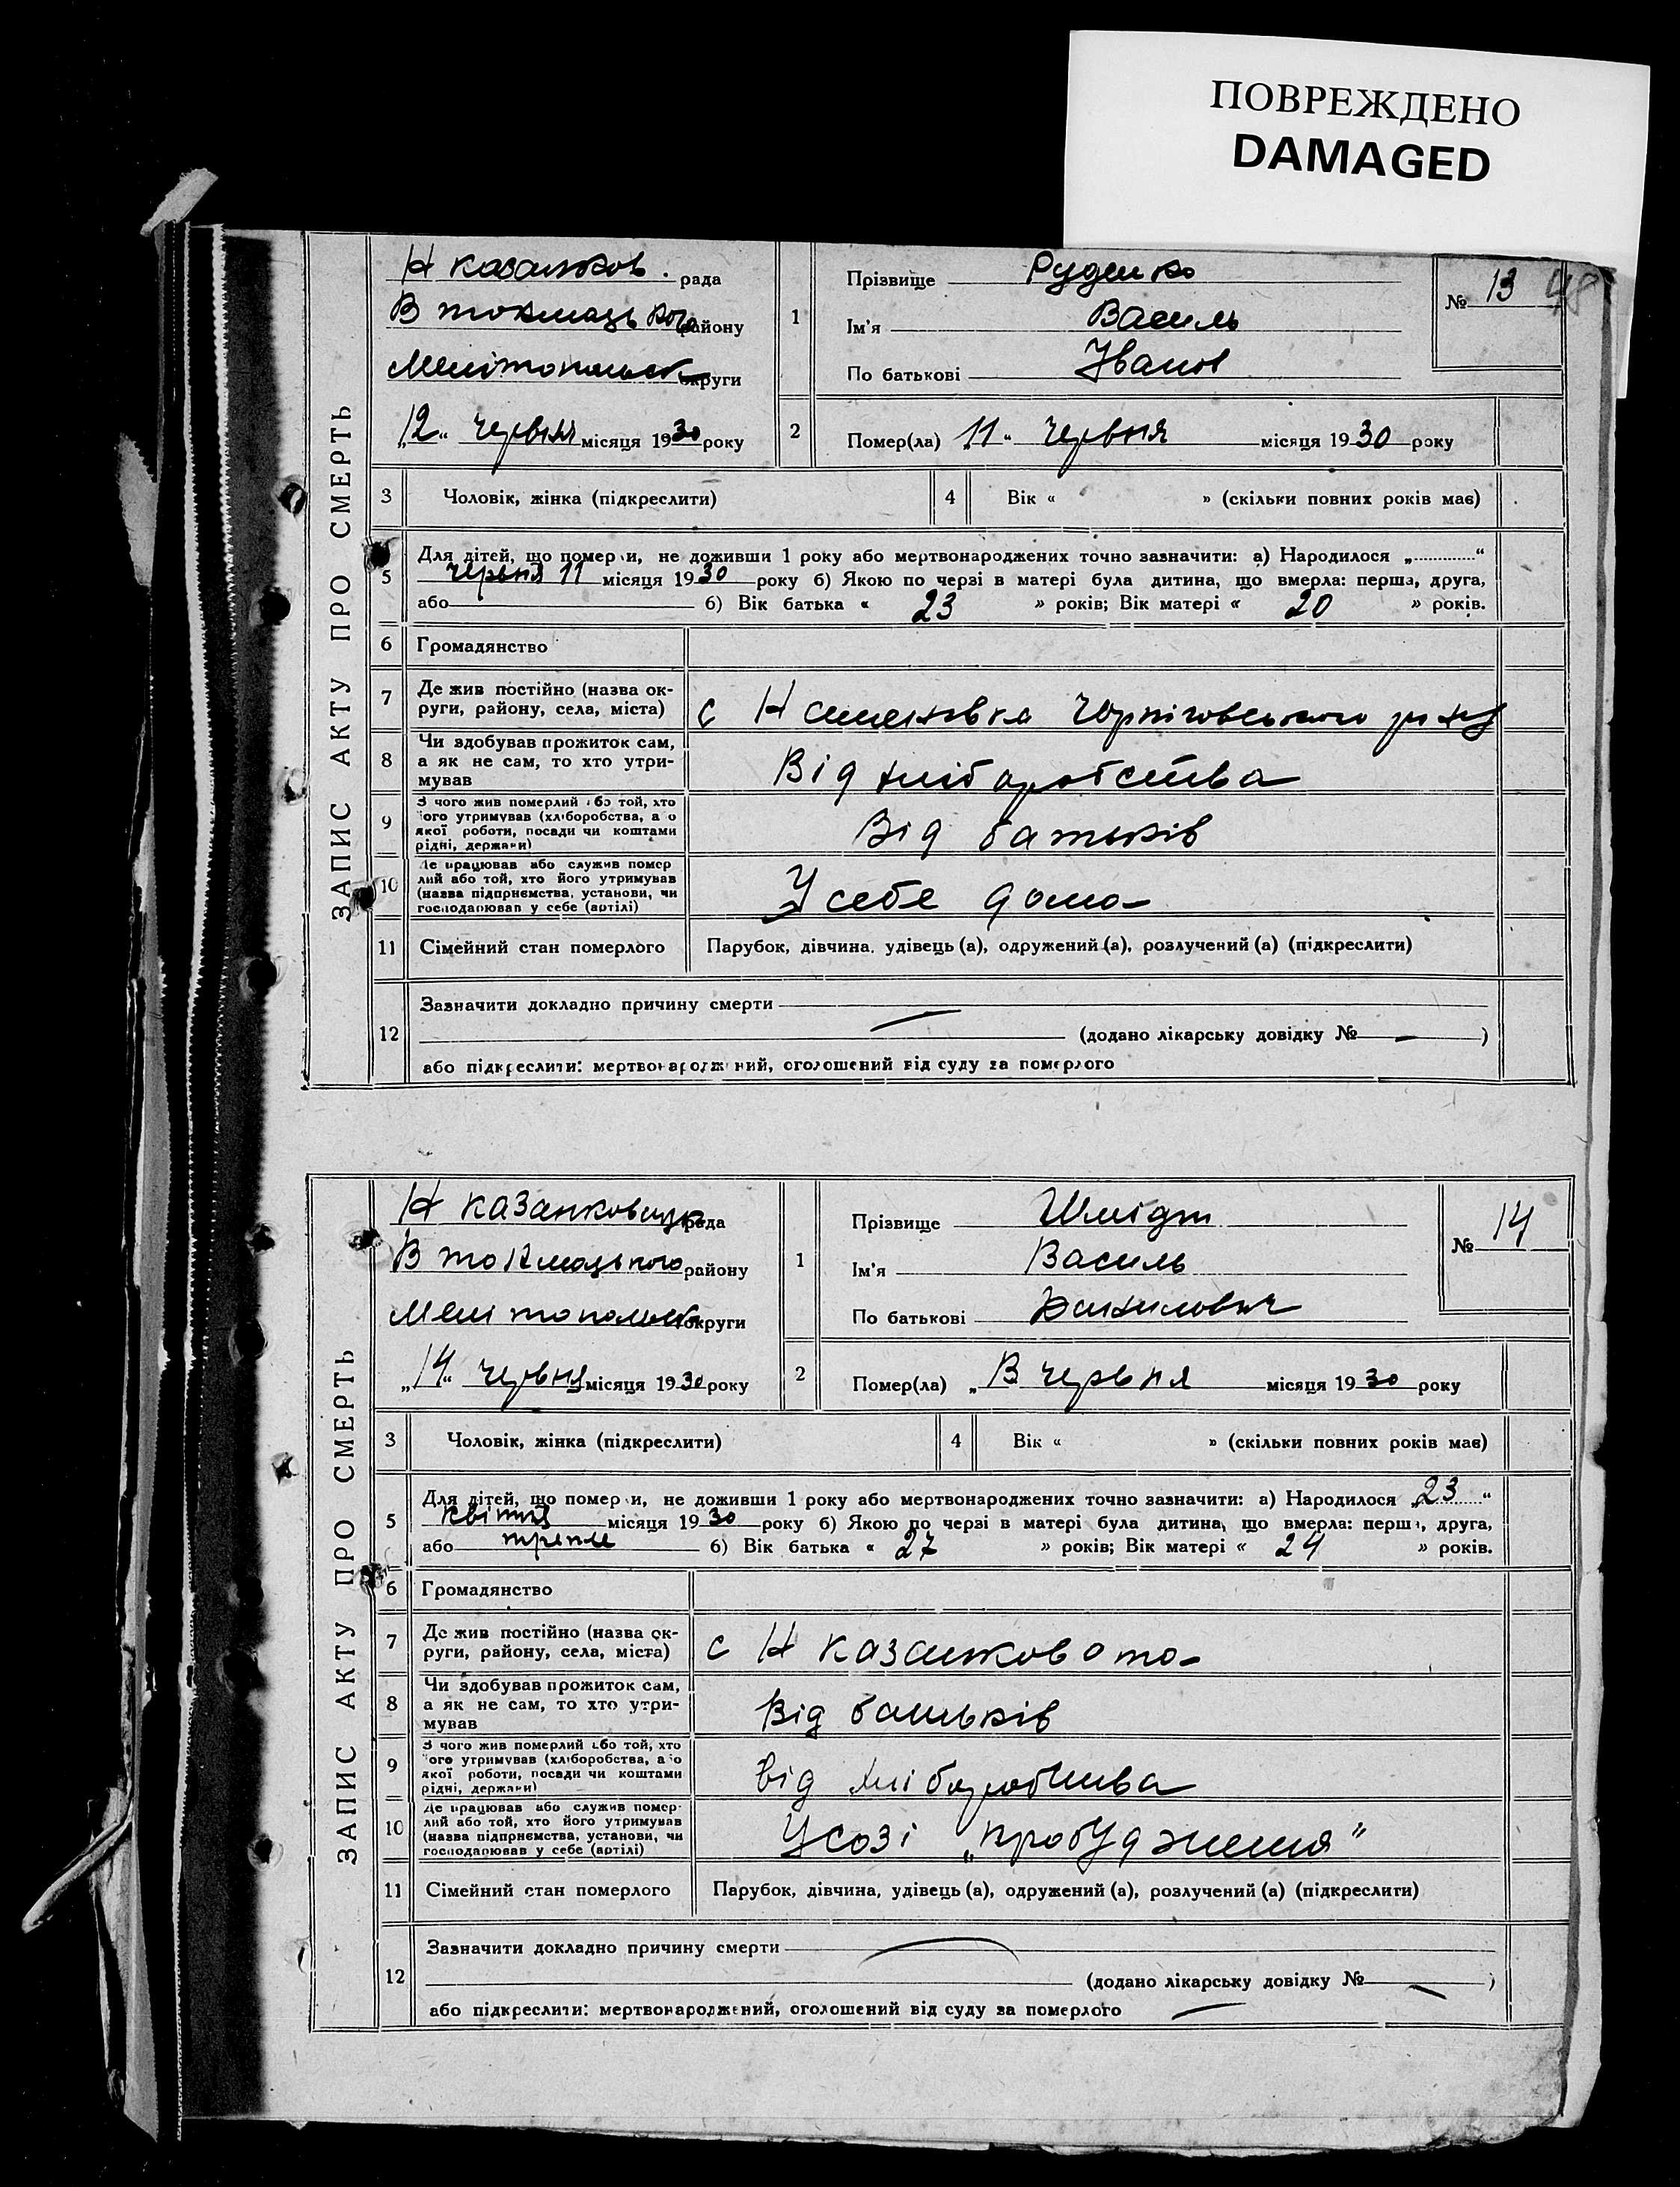 ПОВРЕЖДЕНО
DAMAGED
ЗАПИС АКТУ ПРО СМЕРТЬ
Н казанков. рада
В токмацького району
Мелітопольськ округи
„12“ червня місяця 1930 року
1
Прізвище Руденко
Ім'я Василь
По батькові Іванов
№ 13
48
2
Помер(ла) „11“ червня місяця 1930 року
3 Чоловік, жінка (підкреслити)
4 Вік « » (скільки повних років має)
5
Для дітей, що померли, не доживши 1 року або мертвонароджених точно зазначити: а) Народилося „ “
червня 11 місяця 1930 року б) Якою по черзі в матері була дитина, що вмерла: перша, друга,
або 6) Вік батька « 23 » років; Вік матері « 20 » років.
6 Громадянство
7
Де жив постійно (назва ок-
руги, району, села, міста)
с Н
8
Чи здобував прожиток сам,
а як не сам, то хто утри-
мував
Від хліборобства
9
З чого жив померлий або той, хто
його утримував (хліборобства, або
якої роботи, посади чи коштами
рідні, держави)
Від батьків
10
Де працював або служив помер
лий або той, хто його утримував
(назва підприємства, установи, чи
господарював у себе (артілі)
У себе дома
11 Сімейний стан померлого
Парубок, дівчина, удівець (а), одружений (а), розлучений (а) (підкреслити)
12
Зазначити докладно причину смерти
(додано лікарську довідку № — )
або підкреслити: мертвонароджений, оголошений від суду за померлого
ЗАПИС АКТУ ПРО СМЕРТЬ
Н рада
В токмацького району
Мелітопольськ округи
„14“ червня місяця 1930 року
1
Прізвище Шмідт
Ім'я Василь
По батькові
№ 14
2
Помер(ла) „13 червня місяця 1930 року
3 Чоловік, жінка (підкреслити)
4 Вік « » (скільки повних років має)
5
Для дітей, що померли, не доживши 1 року або мертвонароджених точно зазначити: а) Народилося „23“
квітня місяця 1930 року б) Якою по черзі в матері була дитина, що вмерла: перша, друга,
або 6) Вік батька « 27 » років; Вік матері « 24 » років.
6 Громадянство
7
Де жив постійно (назва ок-
руги, району, села, міста)
с Н казанковата
8
Чи здобував прожиток сам,
а як не сам, то хто утри-
мував
Від батьків
9
З чого жив померлий або той, хто
його утримував (хліборобства, або
якої роботи, посади чи коштами
рідні, держави)
Від хліборобства
10
Де працював або служив помер-
лий або той, хто його утримував
(назва підприємства, установи, чи
господарював у себе (артілі)
У созі „пробудження“
11 Сімейний стан померлого
Парубок, дівчина, удівець (а), одружений (а), розлучений (а) (підкреслити)
12
Зазначити докладно причину смерти
(додано лікарську довідку № — )
або підкреслити: мертвонароджений, оголошений від суду за померлого